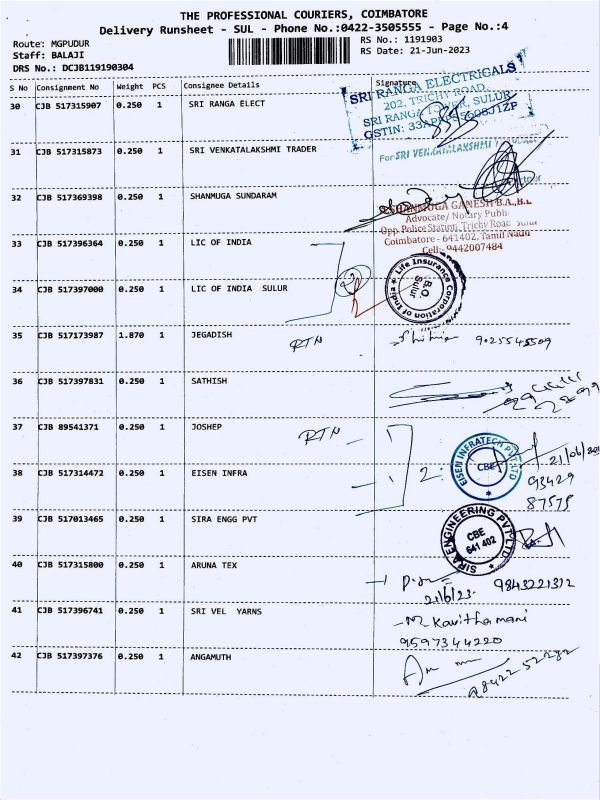 THE PROFESSIONAL COURIERS, COIMBATORE
Delivery Runsheet - SUL - Phone No.:0422-3505555 - Page No.:4
Route: MGPUDUR
Staff: BALAJI
DRS No.: DCJB119190304
RS No.: 1191903
RS Date: 21-Jun-2023
S No Consignment No Weight PCS Consignee Details Signature
30 CJB 517315907 0.250 1 SRI RANGA ELECT
SRI RANGA ELECTRICALS
202, TRICHY ROAD,
SRI RANGA TOWER, SULUR
31 CJB 517315873 0.250 1 SRI VENKATALAKSHMI TRADER
For SRI VENKATALAKSHMI
32 CJB 517369398 0.250 1 SHANMUGA SUNDARAM
SHANMUGA GANESH B.A.,B.L
Advocate/ Notary Public
Opp. Police Station, Trichy Road Sulur
Coimbatore - 641402, Tamil Nadu
Cell: 9442007484
33 CJB 517396364 0.250 1 LIC OF INDIA
34 CJB 517397000 0.250 1 LIC OF INDIA SULUR
Life Insurance Corporation of India
B.O.
Sulur
35 CJB 517173987 1.870 1 JEGADISH
RTN
9025545509
36 CJB 517397831 0.250 1 SATHISH
37 CJB 89541371 0.250 1 JOSHEP
RTN
38 CJB 517314472 0.250 1 EISEN INFRA
2
EISEN INFRATECH PVT LTD
CBE
93429
87575
39 CJB 517013465 0.250 1 SIRA ENGG PVT
SIRA ENGINEERING PVT LTD
CBE
641 402
40 CJB 517315800 0.250 1 ARUNA TEX
21/6/23
9843221312
41 CJB 517396741 0.250 1 SRI VEL YARNS
M. Kavithamani
9597344220
42 CJB 517397376 0.250 1 ANGAMUTH